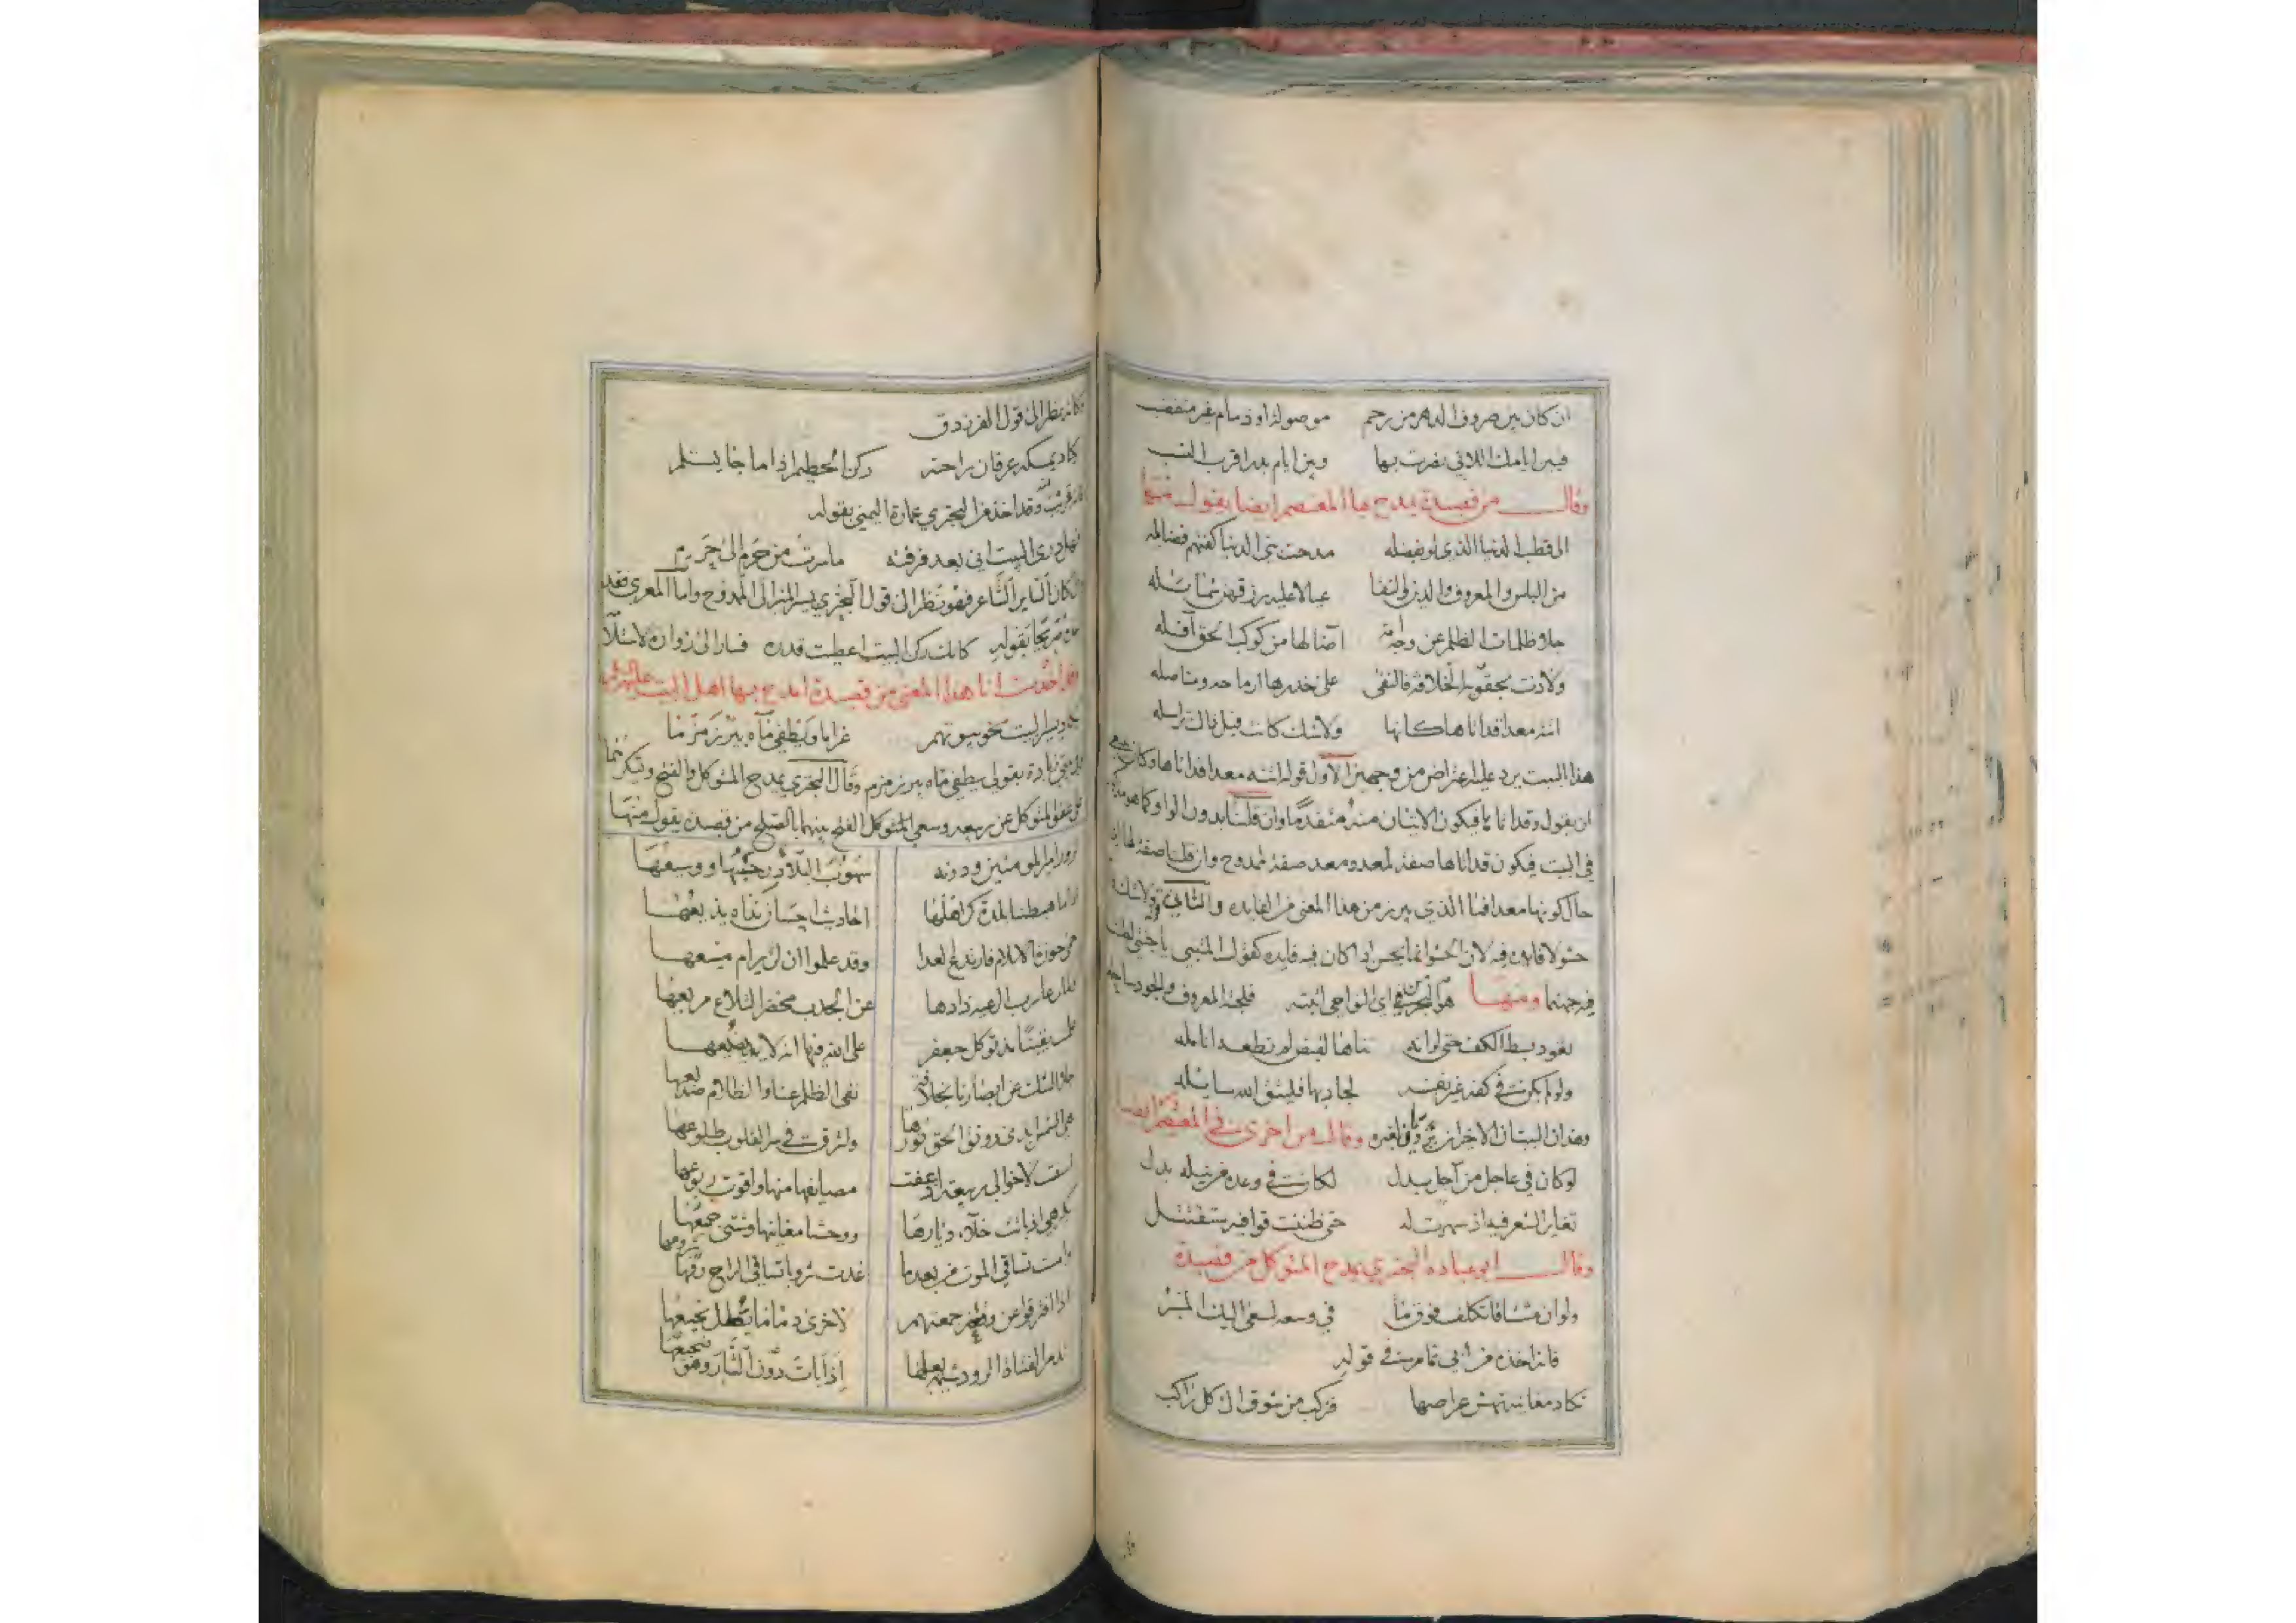 ان كان بين صروف الدهر من رحم موصولة او ذمام غير منقضب
فبين ايامك اللاتي نصرت بها وبين ايام بدر اقرب النسب
وقال من قصيدة يمدح بها المعتصم ايضا يقول منها
الى قطب الدنيا الذي لو بفضله مدحت بني الدنيا كفتهم فضايله
من الباس والمعروف والدين والتقا عيالا عليه رزقهن شمايله
جلا ظلمات الظلم عن وجه امة اضا لها من كوكب الحق آفله
ولاذت بحقويه الخلافة فالتقى على خدرها ارماحه ومناصله
اتته معدا قد اتاها كانها ولا شك كانت قبل ذاك تراسله
هذا البيت يرد عليه اعتراض من وجهين الاول قوله اتته معدا قد اتاها وكان
ان يقول وقد اتاها فيكون الاتيان منه متقدما وان قلنا بدون الواو كما هو
في البيت فيكون قد اتاها صفة لمعد ومعد صفة لممدوح وان قلنا صفة لها
حال كونها معدا فما الذي يبرز من هذا المعنى من الفايده والثاني قوله ولا شك
حشو لا فايده فيه لان الحشو انما يحسن اذا كان فيه فايده كقول المتنبي
ومنها هو البحر من اي النواحي اتيته فلجته المعروف والجود ساحله
تعود بسط الكف حتى لو انه ثناها لقبض لم تطعه انامله
ولو لم يكن في كفه غير نفسه لجاد بها فليتق الله سايله
وهذان البيتان الاخيران يرويان لغيره وقال من اخرى في المعتصم ايضا
لو كان في عاجل من آجل بدل لكان في وعده من نيله بدل
تغاير الشعر فيه اذ سهرت له حتى ظننت قوافيه ستقتتل
وقال ابو عباده البحتري يمدح المتوكل من قصيدة
ولو ان مشتاقا تكلف فوق ما في وسعه لسعى اليك المنبر
فانه اخذه من ابي تمام في قوله
تكاد مغانيه تهش عراصها فتركب من شوق الى كل راكب
وكانه نظر الى قول الفرزدق
يكاد يمسكه عرفان راحته ركن الحطيم اذا ما جا يستلم
وقد اخذ من البحتري عمارة اليمني بقوله
فهل درى البيت اني بعد فرقته ما سرت من حرم الا الى حرم
كان الساير الشاعر فهو نظر الى قول البحتري يسير المنبر الى الممدوح واما المعري فقد
بقوله كانك ركن البيت اعطيت قدره فسار الى زواره لاستلا
اخذت انا هذا المعنى من قصيدة امدح بها اهل البيت عليهم
يكاد يسير البيت نحو بيوتهم غراما ويطفي مآه بير زمزما
زيادة بقولي يطفي ماه بير زمزم وقال البحتري يمدح المتوكل والفتح ويشكرهما
عفو المتوكل عن ربيعه وسعي المتوكل الفتح بينهما بالصلح من قصيده يقول منها
نزور امير المومنين ودونه سهوب البلاد رحبها ووسيعها
اذا ما هبطنا بلدة كر اهلها احاديث احسان نداه يذيعها
حمى حوزة الاسلام فارتدع العدا وقد علموا ان لن يرام منيعها
عن الجدب مخضر التلاع مريعها
علمت يقينا مذ توكل جعفر على الله فيها انه لا يضيعها
جلا الشك عن ابصارنا بخلافة نفى الظلم عنا والظلام صديعها
هي الشمس ابدى رونق الحق نورها واشرقت في سر القلوب طلوعها
اسفت لاخوالي ربيعة اذ عفت مصايفها منها واقوت ربوعها
بكرهي اذ باتت خلآء ديارها ووحشا مغانيها وشتى جميعها
وامست تساقي الموت من بعدما غدت شروبا تساقى الراح رفها شروعها
اذا افترقوا عن وقعة جمعتهم لاخرى دمآ ما يطل نجيعها
تذم الفتاة الرود شيمة بعلها اذا بات دون الثار وهو ضجيعها